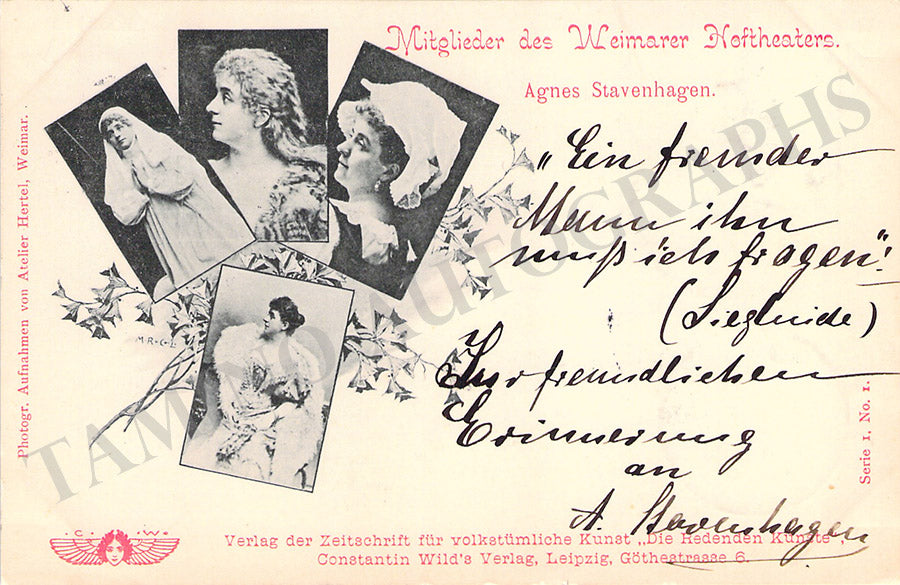 Mitglieder des Weimarer Hoftheaters.
Agnes Stavenhagen.
„Ein fremder
Mann ihn
muß ich fragen“!
(Sieglinde)
Zur freundlichen
Erinnerung
an
A. Stavenhagen
Photogr. Aufnahmen von Atelier Hertel, Weimar.
M·R·C·L·
Serie 1, No. 1.
.C. W.
Verlag der Zeitschrift für volkstümliche Kunst „Die Redenden Künste“,
Constantin Wild's Verlag, Leipzig, Göthestrasse 6.
TAMINO AUTOGRAPHS